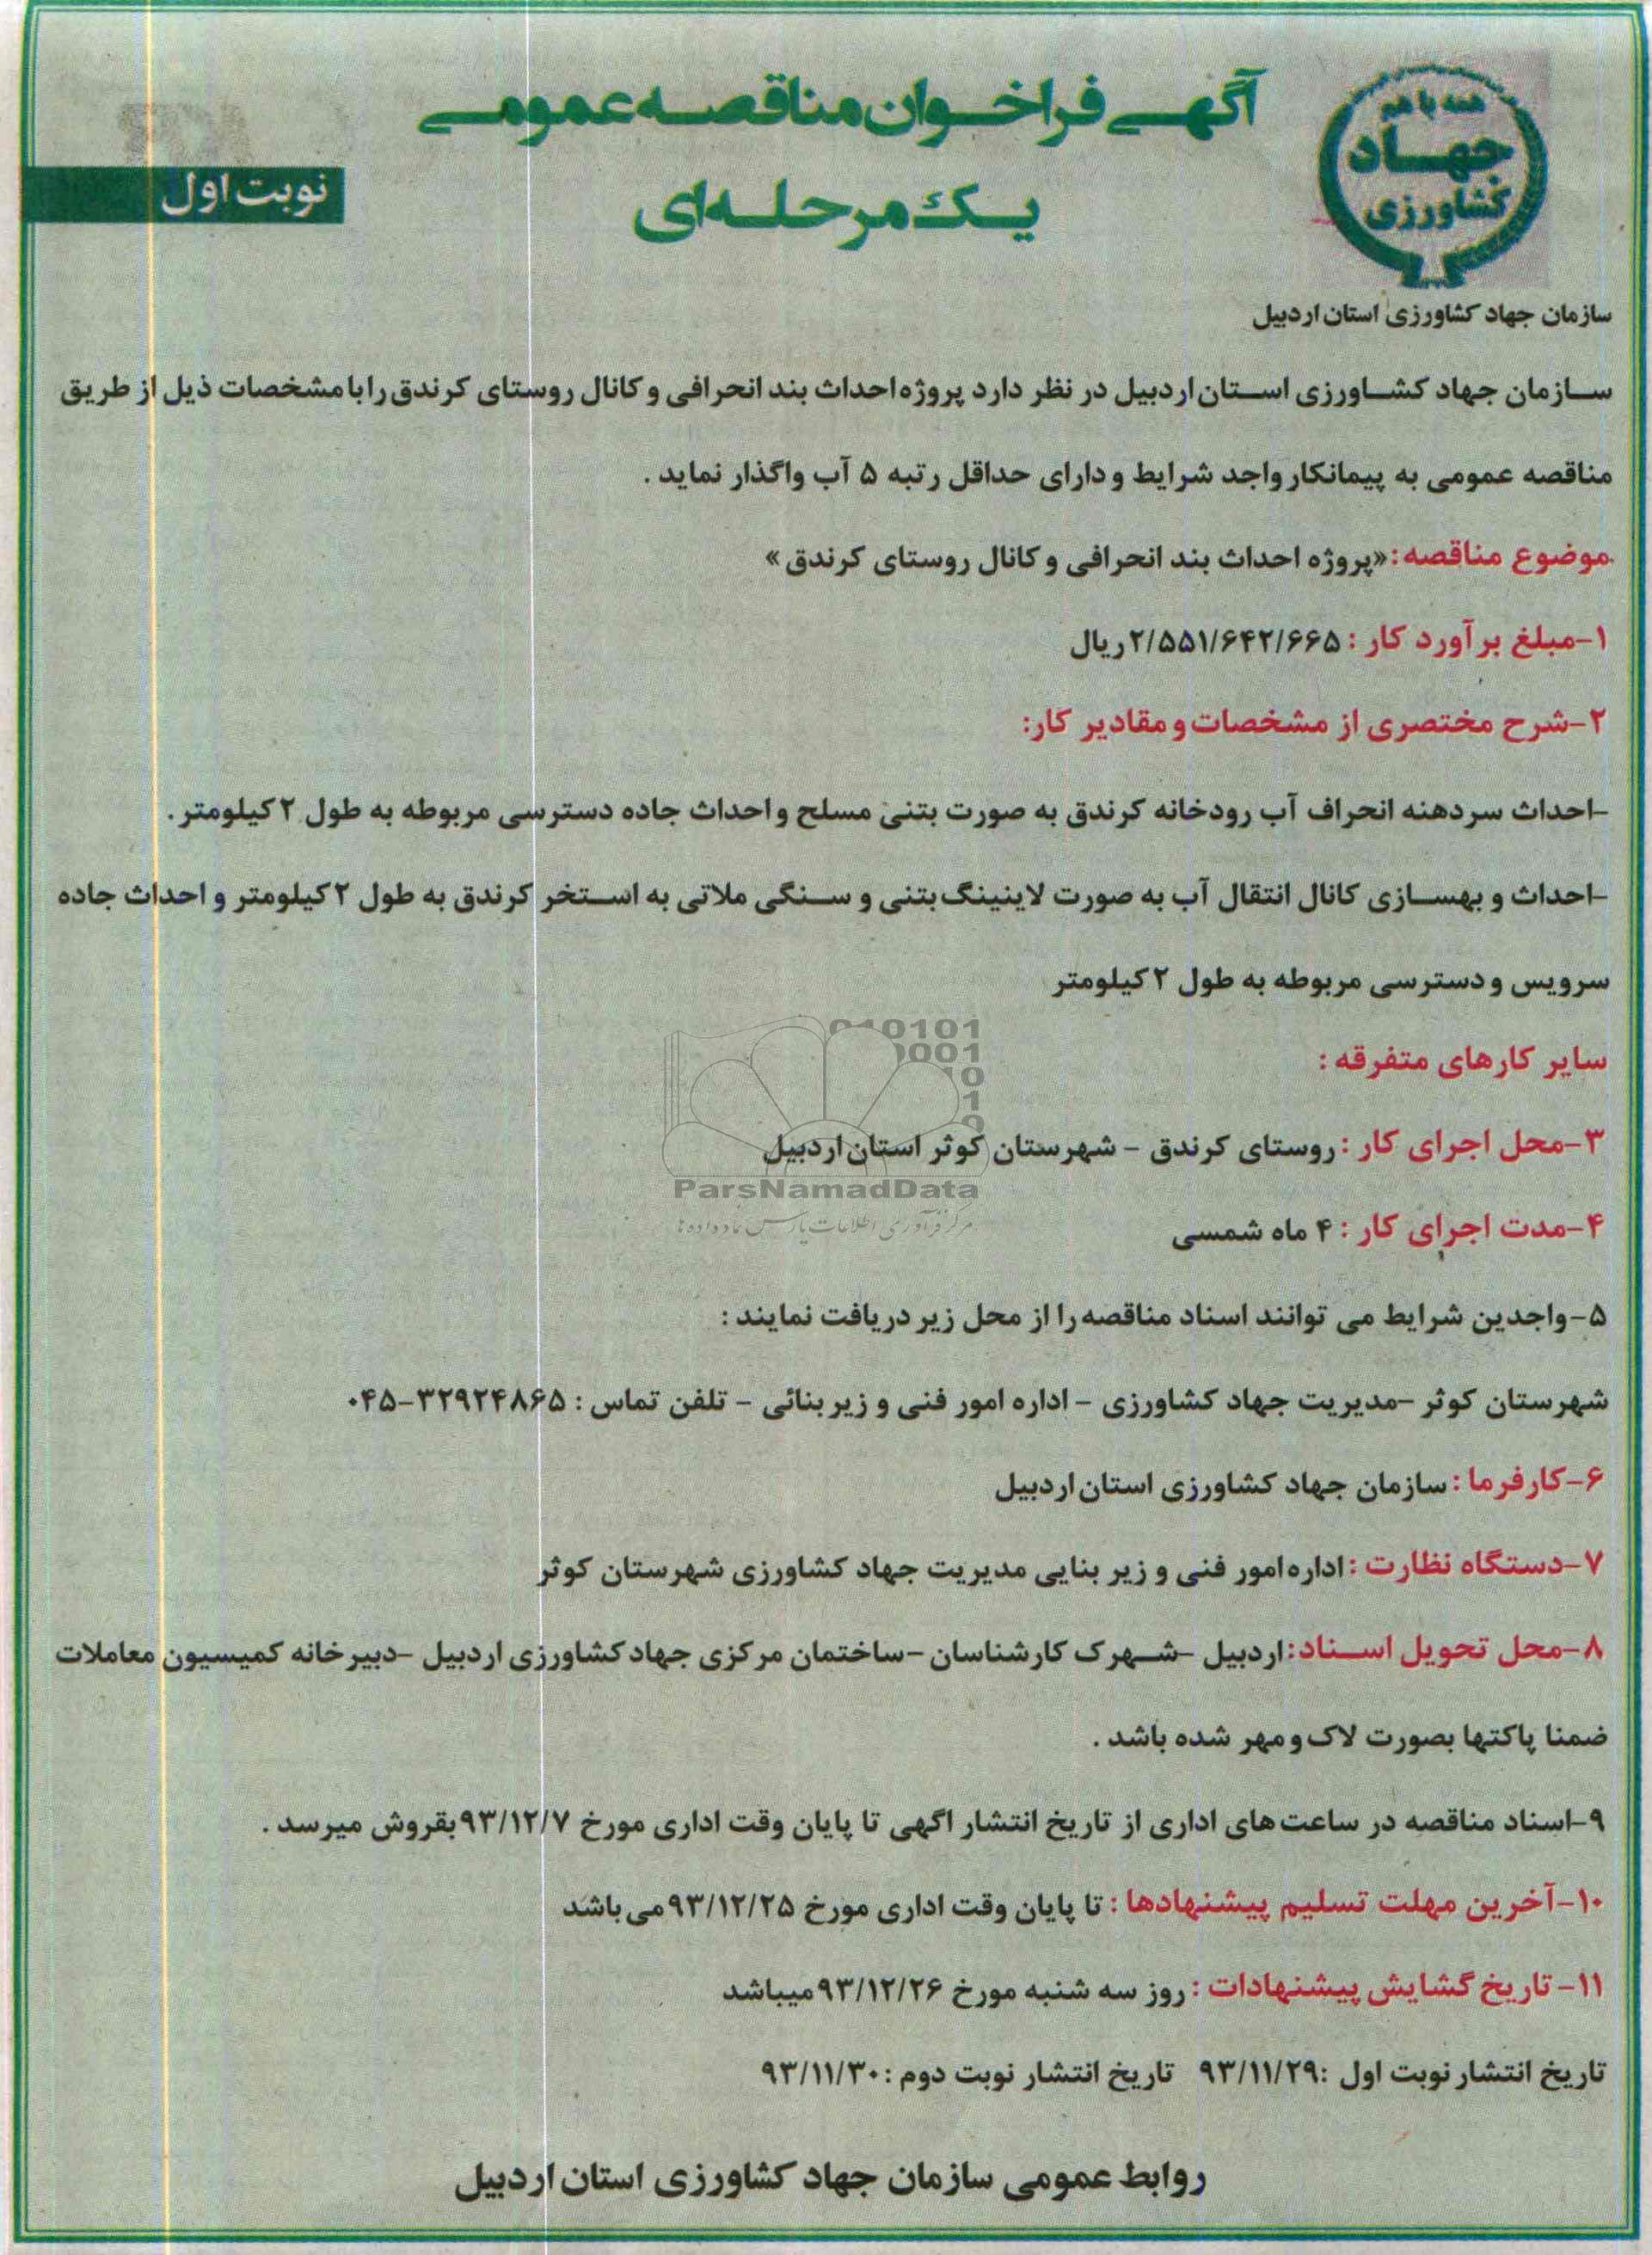 همه با هم
جهاد
کشاورزی
آگهی فراخوان مناقصه عمومی
یک مرحله‌ای
نوبت اول
سازمان جهاد کشاورزی استان اردبیل
سازمان جهاد کشاورزی استان اردبیل در نظر دارد پروژه احداث بند انحرافی و کانال روستای کرندق را با مشخصات ذیل از طریق
مناقصه عمومی به پیمانکار واجد شرایط و دارای حداقل رتبه ۵ آب واگذار نماید .
موضوع مناقصه: «پروژه احداث بند انحرافی و کانال روستای کرندق »
۱-مبلغ برآورد کار : ۲/۵۵۱/۶۴۲/۶۶۵ ریال
۲-شرح مختصری از مشخصات و مقادیر کار:
-احداث سردهنه انحراف آب رودخانه کرندق به صورت بتنی مسلح و احداث جاده دسترسی مربوطه به طول ۲ کیلومتر .
-احداث و بهسازی کانال انتقال آب به صورت لاینینگ بتنی و سنگی ملاتی به استخر کرندق به طول ۲ کیلومتر و احداث جاده
سرویس و دسترسی مربوطه به طول ۲ کیلومتر
سایر کارهای متفرقه :
۳-محل اجرای کار : روستای کرندق - شهرستان کوثر استان اردبیل
۴-مدت اجرای کار : ۴ ماه شمسی
۵-واجدین شرایط می توانند اسناد مناقصه را از محل زیر دریافت نمایند :
شهرستان کوثر -مدیریت جهاد کشاورزی - اداره امور فنی و زیربنائی - تلفن تماس : ۳۲۹۲۴۸۶۵-۰۴۵
۶-کارفرما : سازمان جهاد کشاورزی استان اردبیل
۷-دستگاه نظارت : اداره امور فنی و زیر بنایی مدیریت جهاد کشاورزی شهرستان کوثر
۸-محل تحویل اسناد: اردبیل -شهرک کارشناسان -ساختمان مرکزی جهاد کشاورزی اردبیل -دبیرخانه کمیسیون معاملات
ضمنا پاکتها بصورت لاک و مهر شده باشد .
۹-اسناد مناقصه در ساعت های اداری از تاریخ انتشار اگهی تا پایان وقت اداری مورخ ۹۳/۱۲/۷ بقروش میرسد .
۱۰-آخرین مهلت تسلیم پیشنهادها : تا پایان وقت اداری مورخ ۹۳/۱۲/۲۵ می باشد
۱۱- تاریخ گشایش پیشنهادات : روز سه شنبه مورخ ۹۳/۱۲/۲۶ میباشد
تاریخ انتشار نوبت اول :۹۳/۱۱/۲۹ تاریخ انتشار نوبت دوم :۹۳/۱۱/۳۰
روابط عمومی سازمان جهاد کشاورزی استان اردبیل
ParsNamadData
مرکز فرآوری اطلاعات پارس نماد داده ها